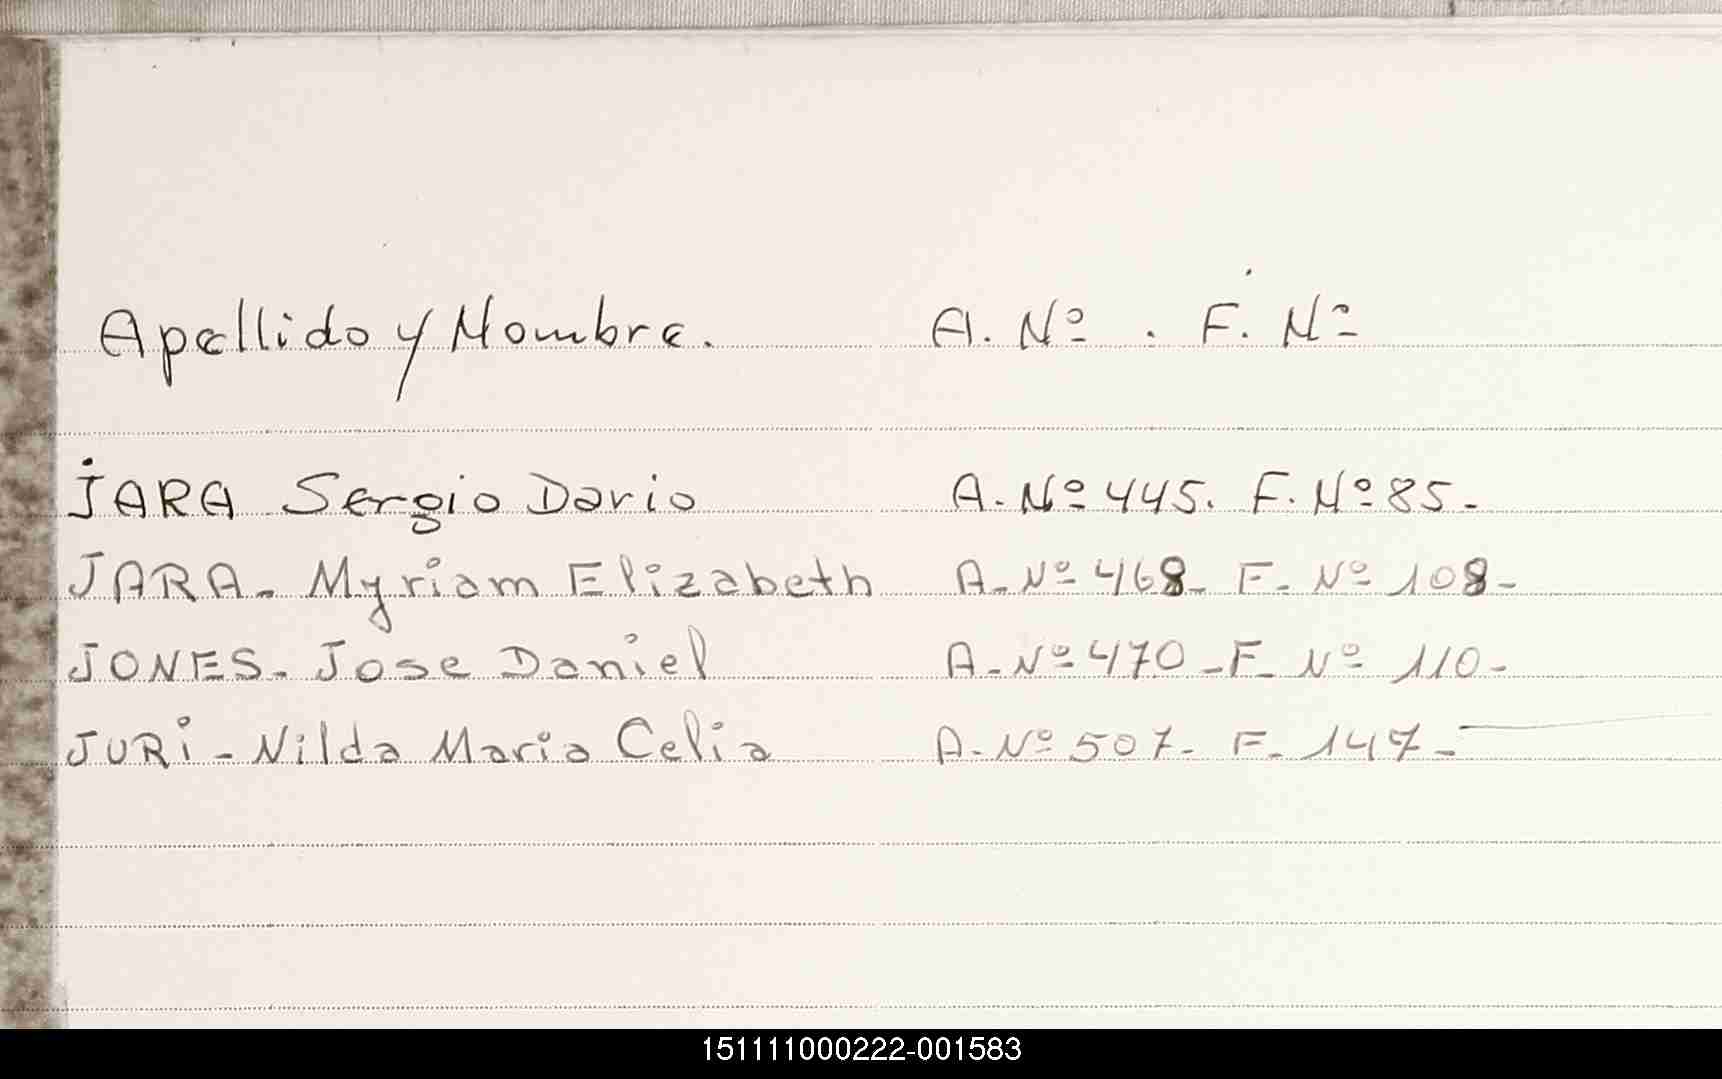 Apellido y Nombre. A. Nº . F. Nº
JARA Sergio Dario A. Nº 445. F. Nº 85-
JARA- Myriam Elizabeth A- Nº 468- F- Nº 108-
JONES- Jose Daniel A- Nº 470 - F- Nº 110-
JURi - Nilda Maria Celia A- Nº 507- F- 147-
151111000222-001583